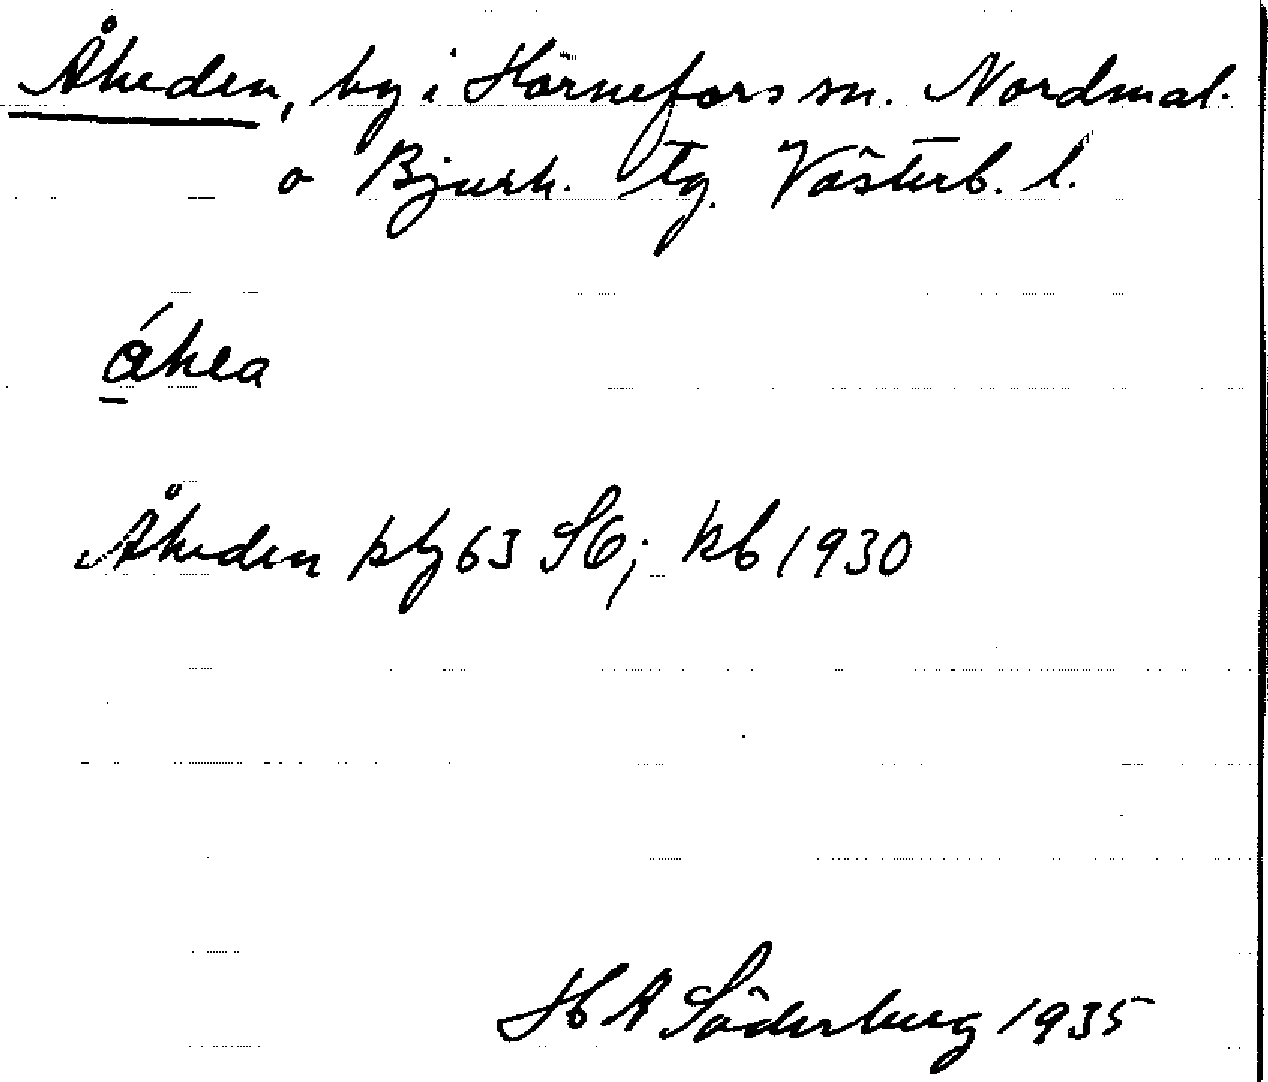 Åheden, by i Hörnefors sn. Nordmal.
o Bjurh. tg. Västerb. l.
åhea
Åheden kbl 63 SÖ; kb 1930
H A Söderberg 1935